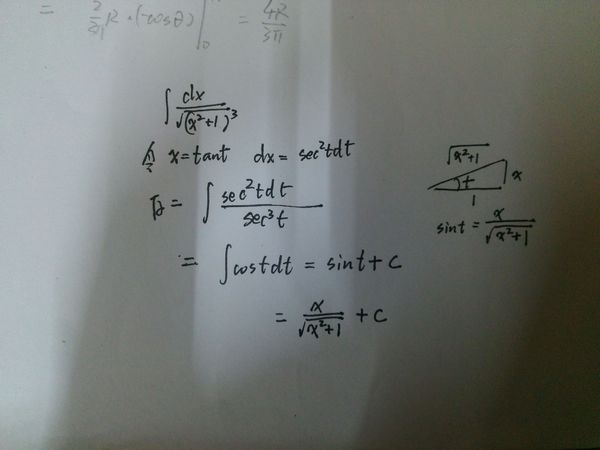 = 2/π R · (-cosθ) |₀ = 4R/3π
∫ dx/√(x²+1)³
令 x=tant dx= sec²tdt
原= ∫ sec²tdt/sec³t
= ∫costdt = sint+c
= x/√(x²+1) +c
√(x²+1)
t x
1
sint = x/√(x²+1)